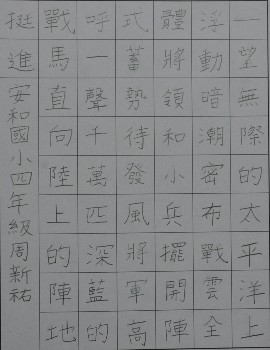 一望無際的太平洋上
浮動暗潮密布戰雲全
體將領和小兵擺開陣
式蓄勢待發風將軍高
呼一聲千萬匹深藍的
戰馬直向陸上的陣地
挺進 安和國小四年級周新祐